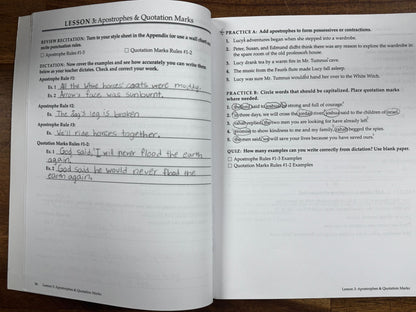 LESSON 3: Apostrophes & Quotation Marks
REVIEW RECITATION: Turn to your style sheet in the Appendix for use a wall chart
write punctuation rules.
☐ Apostrophe Rules #1-3 ☐ Quotation Marks Rules #1-2
DICTATION: Now cover the examples and see how accurately you can write them
below as your teacher dictates. Check and correct your work.
Apostrophe Rule #1:
Ex. 1 All the White horses' coats were
Ex. 2 face was sunburnt.
Apostrophe Rule #2:
Ex. The leg is broken
Apostrophe Rule #3:
Ex. We'll ride horses together.
Quotation Marks Rules #1-2:
Ex. 1 God said, I will never flood the earth
again.
Ex. 2 God said he would never flood the
earth again.
Lesson 3: Apostrophes & Quotation Marks
PRACTICE A: Add apostrophes to form possessives or contractions.
1. Lucys adventures began when she stepped into a wardrobe.
2. Peter, Susan, and Edmund didnt think there was any reason to explore the wardrobe in
the spare room of the old professors house.
3. Lucy drank tea by a warm fire in Mr. Tumnus cave.
4. The music from the Fauns flute made Lucy fall asleep.
5. Lucy was sure Mr. Tumnus wouldnt hand her over to the White Witch.
PRACTICE B: Circle words that should be capitalized. Place quotation marks
where needed.
1. the lord said to joshua be strong and full of courage
2. in three days, we will cross the jordan river joshua said to the children of israel
3. rahab replied, the two men you are looking for have already left
4. promise to show kindness to me and my family, rahab begged the spies.
5. the men said, we will save your lives because you have saved ours.
QUIZ: How many examples can you write correctly from dictation? Use blank paper.
☐ Apostrophe Rules #1-3 Examples
☐ Quotation Marks Rules #1-2 Examples
Lesson 3: Apostrophes & Quotation Marks